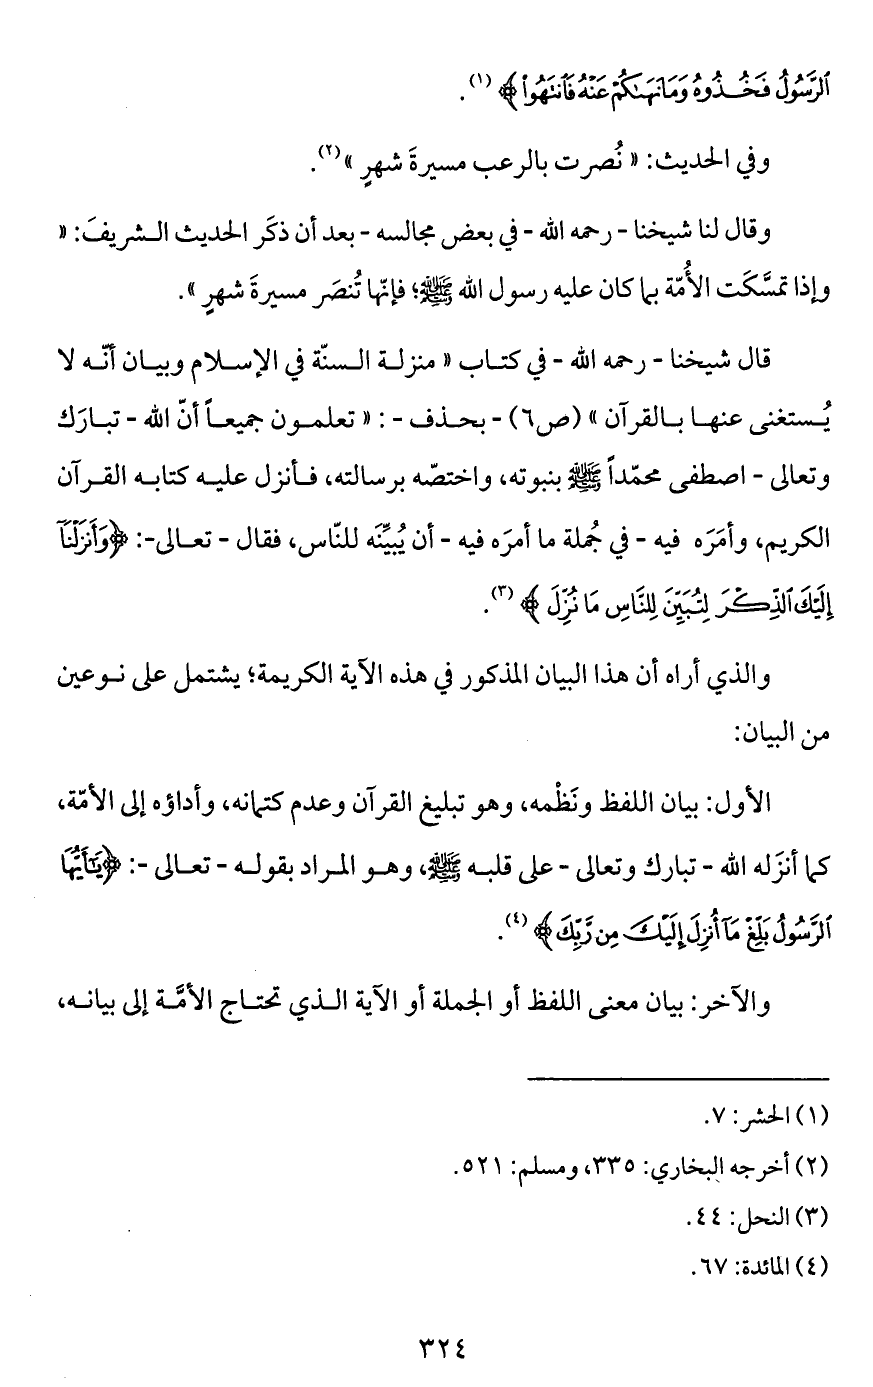 ٱلرَّسُولُ فَخُذُوهُ وَمَا نَهَىٰكُمْ عَنْهُ فَٱنتَهُوا۟ ﴾ (١).
وفي الحديث: « نُصرت بالرعب مسيرةَ شهرٍ »(٢).
وقال لنا شيخنا - رحمه الله - في بعض مجالسه - بعد أن ذكَر الحديث الشريفَ: «
وإذا تمسَّكَت الأُمّة بما كان عليه رسول الله ﷺ؛ فإنّها تُنصَر مسيرةَ شهرٍ ».
قال شيخنا - رحمه الله - في كتاب « منزلة السنّة في الإسلام وبيان أنّه لا
يُستغنى عنها بالقرآن » (ص٦) - بحذف - : « تعلمون جميعاً أنّ الله - تبارك
وتعالى - اصطفى محمّداً ﷺ بنبوته، واختصّه برسالته، فأنزل عليه كتابه القرآن
الكريم، وأمَرَه فيه - في جُملة ما أمرَه فيه - أن يُبيِّنَه للنّاس، فقال - تعالى-: ﴿وَأَنزَلْنَآ
إِلَيْكَ ٱلذِّكْرَ لِتُبَيِّنَ لِلنَّاسِ مَا نُزِّلَ ﴾ (٣).
والذي أراه أن هذا البيان المذكور في هذه الآية الكريمة؛ يشتمل على نوعين
من البيان:
الأول: بيان اللفظ ونَظْمه، وهو تبليغ القرآن وعدم كتمانه، وأداؤه إلى الأمّة،
كما أنزَله الله - تبارك وتعالى - على قلبه ﷺ، وهو المراد بقوله - تعالى -: ﴿يَٰٓأَيُّهَا
ٱلرَّسُولُ بَلِّغْ مَآ أُنزِلَ إِلَيْكَ مِن رَّبِّكَ ﴾ (٤).
والآخر: بيان معنى اللفظ أو الجملة أو الآية الذي تحتاج الأمَّة إلى بيانه،
(١) الحشر: ٧.
(٢) أخرجه البخاري: ٣٣٥، ومسلم: ٥٢١.
(٣) النحل: ٤٤.
(٤) المائدة: ٦٧.
٣٢٤